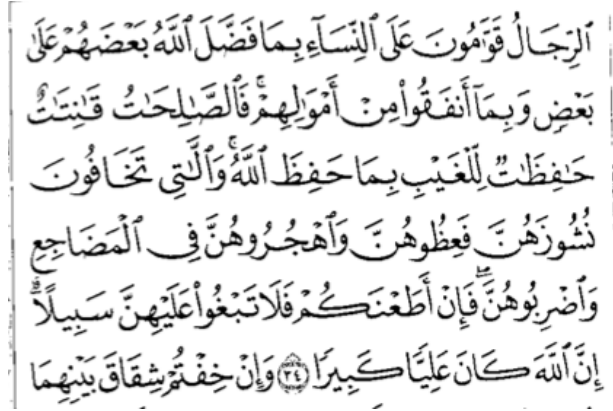 ٱلرِّجَالُ قَوَّٰمُونَ عَلَى ٱلنِّسَآءِ بِمَا فَضَّلَ ٱللَّهُ بَعْضَهُمْ عَلَىٰ
بَعْضٍ وَبِمَآ أَنفَقُوا۟ مِنْ أَمْوَٰلِهِمْ ۚ فَٱلصَّٰلِحَٰتُ قَٰنِتَٰتٌ
حَٰفِظَٰتٌ لِّلْغَيْبِ بِمَا حَفِظَ ٱللَّهُ ۚ وَٱلَّٰتِى تَخَافُونَ
نُشُوزَهُنَّ فَعِظُوهُنَّ وَٱهْجُرُوهُنَّ فِى ٱلْمَضَاجِعِ
وَٱضْرِبُوهُنَّ ۖ فَإِنْ أَطَعْنَكُمْ فَلَا تَبْغُوا۟ عَلَيْهِنَّ سَبِيلًا ۗ
إِنَّ ٱللَّهَ كَانَ عَلِيًّا كَبِيرًا ﴿٣٤﴾ وَإِنْ خِفْتُمْ شِقَاقَ بَيْنِهِمَا